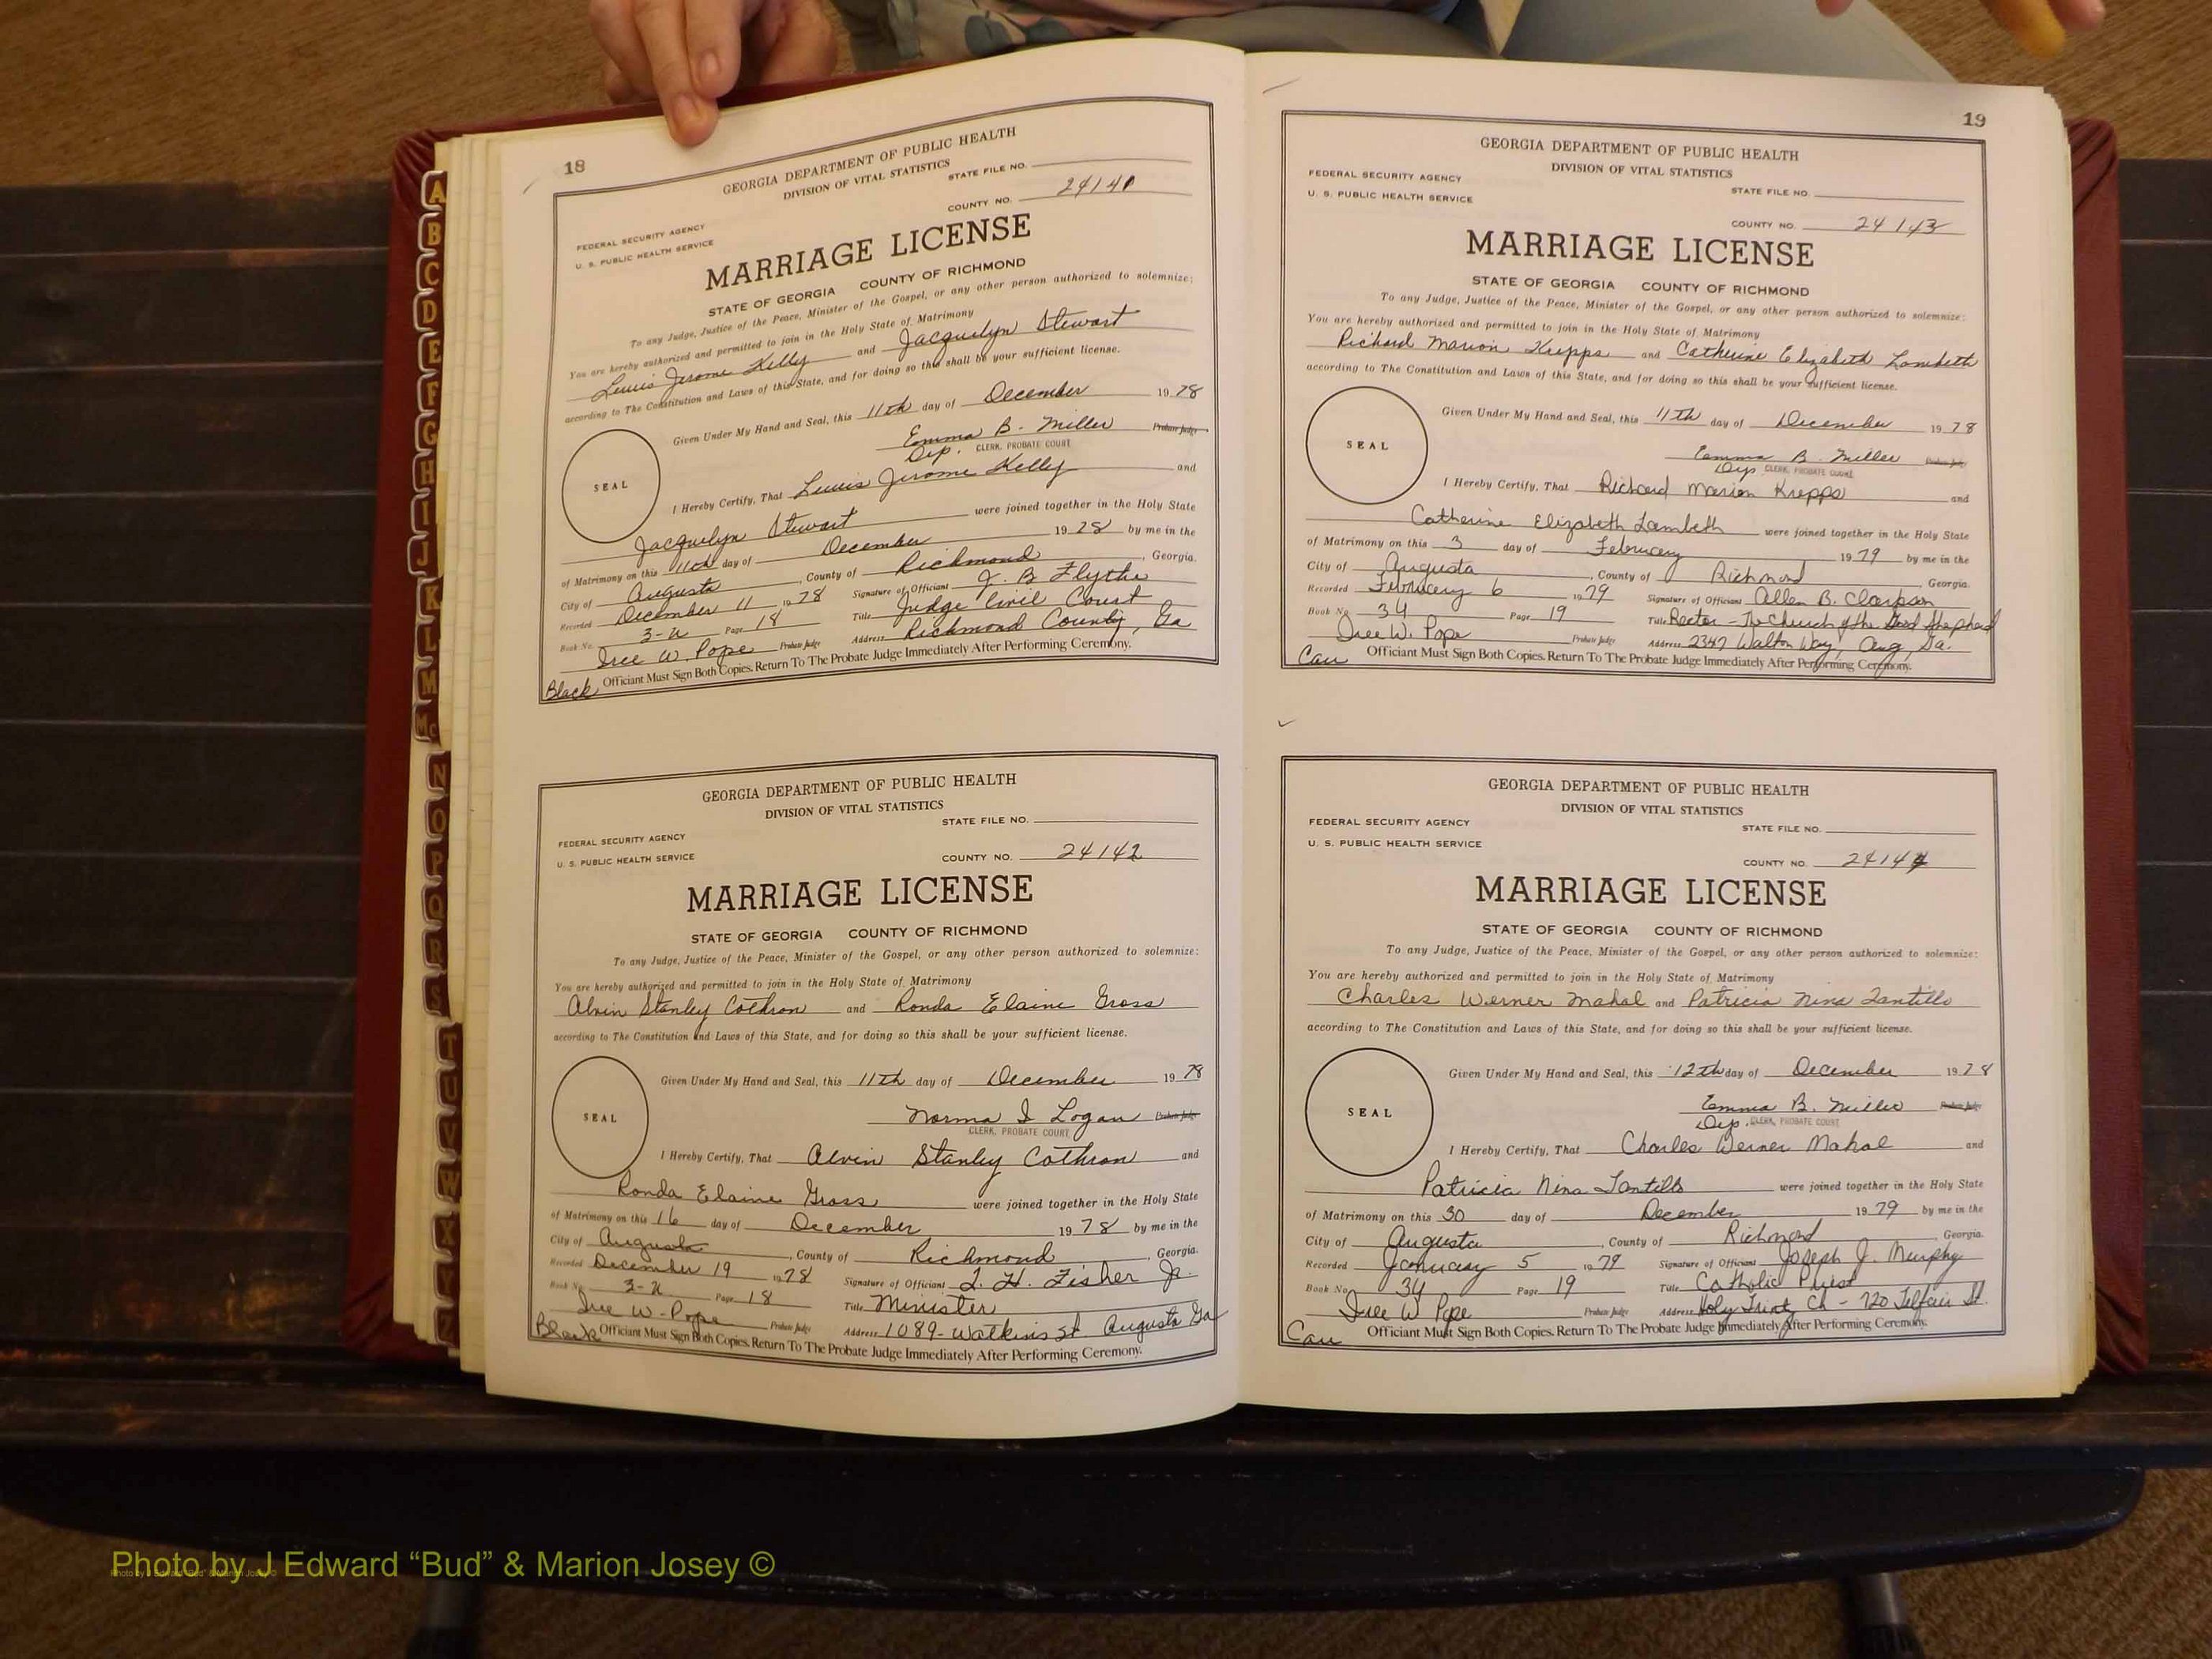 18
GEORGIA DEPARTMENT OF PUBLIC HEALTH
DIVISION OF VITAL STATISTICS
STATE FILE NO.
FEDERAL SECURITY AGENCY
U. S. PUBLIC HEALTH SERVICE
COUNTY NO. 24141
MARRIAGE LICENSE
STATE OF GEORGIA COUNTY OF RICHMOND
To any Judge, Justice of the Peace, Minister of the Gospel, or any other person authorized to solemnize:
You are hereby authorized and permitted to join in the Holy State of Matrimony
Jerome Kelly and Jacquelyn Stewart
according to The Constitution and Laws of this State, and for doing so this shall be your sufficient license.
Given Under My Hand and Seal, this 11th day of December 1978
Emma B. Miller Probate Judge
Dep. CLERK, PROBATE COURT
SEAL
I Hereby Certify, That Jerome Kelly and
Jacquelyn Stewart were joined together in the Holy State
of Matrimony on this 11th day of December 1978 by me in the
City of Augusta, County of Richmond, Georgia.
Recorded December 11 1978 Signature of Officiant J. B. Flythe
Book No. 3-U Page 18 Title Judge Civil Court
W. Pope Probate Judge Address Richmond County, Ga
Officiant Must Sign Both Copies. Return To The Probate Judge Immediately After Performing Ceremony.
Black
GEORGIA DEPARTMENT OF PUBLIC HEALTH
DIVISION OF VITAL STATISTICS
STATE FILE NO.
FEDERAL SECURITY AGENCY
U. S. PUBLIC HEALTH SERVICE
COUNTY NO. 24142
MARRIAGE LICENSE
STATE OF GEORGIA COUNTY OF RICHMOND
To any Judge, Justice of the Peace, Minister of the Gospel, or any other person authorized to solemnize:
You are hereby authorized and permitted to join in the Holy State of Matrimony
Alvin Stanley Cothron and Ronda Elaine Gross
according to The Constitution and Laws of this State, and for doing so this shall be your sufficient license.
Given Under My Hand and Seal, this 11th day of December 1978
Norma I Logan Probate Judge
CLERK, PROBATE COURT
SEAL
I Hereby Certify, That Alvin Stanley Cothron and
Ronda Elaine Gross were joined together in the Holy State
of Matrimony on this 16 day of December 1978 by me in the
City of Augusta, County of Richmond, Georgia.
Recorded December 19 1978 Signature of Officiant L. H. Fisher Jr.
Book No. 3-U Page 18 Title Minister
W. Pope Probate Judge Address 1089-Watkins St Augusta Ga
Officiant Must Sign Both Copies. Return To The Probate Judge Immediately After Performing Ceremony.
Black
19
GEORGIA DEPARTMENT OF PUBLIC HEALTH
DIVISION OF VITAL STATISTICS
FEDERAL SECURITY AGENCY
U. S. PUBLIC HEALTH SERVICE
STATE FILE NO.
COUNTY NO. 24143
MARRIAGE LICENSE
STATE OF GEORGIA COUNTY OF RICHMOND
To any Judge, Justice of the Peace, Minister of the Gospel, or any other person authorized to solemnize:
You are hereby authorized and permitted to join in the Holy State of Matrimony
Richard Marion Krepps and Catherine Elizabeth Lambeth
according to The Constitution and Laws of this State, and for doing so this shall be your sufficient license.
Given Under My Hand and Seal, this 11th day of December 1978
Emma B. Miller Probate Judge
Dep. CLERK, PROBATE COURT
SEAL
I Hereby Certify, That Richard Marion Krepps and
Catherine Elizabeth Lambeth were joined together in the Holy State
of Matrimony on this 3 day of February 1979 by me in the
City of Augusta, County of Richmond, Georgia.
Recorded February 6 1979 Signature of Officiant Allen B. Clarkson
Book No. 3U Page 19 Title Rector - The Church of the Good Shepherd
W. Pope Probate Judge Address 2347 Walton Way, Aug, Ga.
Officiant Must Sign Both Copies. Return To The Probate Judge Immediately After Performing Ceremony.
Cau
GEORGIA DEPARTMENT OF PUBLIC HEALTH
DIVISION OF VITAL STATISTICS
FEDERAL SECURITY AGENCY
STATE FILE NO.
U. S. PUBLIC HEALTH SERVICE
COUNTY NO. 24144
MARRIAGE LICENSE
STATE OF GEORGIA COUNTY OF RICHMOND
To any Judge, Justice of the Peace, Minister of the Gospel, or any other person authorized to solemnize:
You are hereby authorized and permitted to join in the Holy State of Matrimony
Charles Werner Mahal and Patricia Nina Tantillo
according to The Constitution and Laws of this State, and for doing so this shall be your sufficient license.
Given Under My Hand and Seal, this 12th day of December 1978
Emma B. Miller Probate Judge
Dep. CLERK, PROBATE COURT
SEAL
I Hereby Certify, That Charles Werner Mahal and
Patricia Nina Tantillo were joined together in the Holy State
of Matrimony on this 30 day of December 1979 by me in the
City of Augusta, County of Richmond, Georgia.
Recorded January 5 1979 Signature of Officiant Joseph J. Murphy
Book No. 3U Page 19 Title Catholic Priest
W Pope Probate Judge Address Holy Trinty Ch - 720 Telfair St.
Officiant Must Sign Both Copies. Return To The Probate Judge Immediately After Performing Ceremony.
Cau
A
B
C
D
E
F
G
H
I
J
K
L
M
Mc
N
O
P
Q
R
S
T
U
V
W
X
Y
Z
Photo by J Edward “Bud” & Marion Josey ©